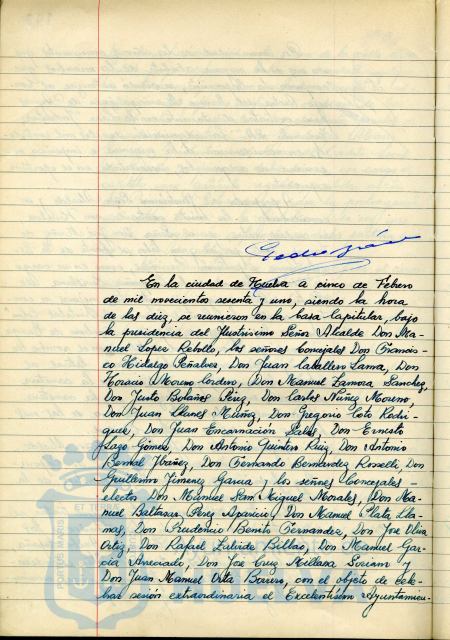 En la ciudad de Huelva a cinco de Febrero
de mil novecientos sesenta y uno, siendo la hora
de las diez, se reunieron en la Casa Capitular, bajo
la presidencia del Ilustrísimo Señor Alcalde Don Ma-
nuel Lopez Rebollo, los señores Concejales Don Francis-
co Hidalgo Peñalver, Don Juan Caballero Lama, Don
Horacio Moreno Cordero, Don Manuel Zamora Sanchez,
Don Justo Bolaños Pérez, Don Carlos Nuñez Moreno,
Don Juan Llanes Muñiz, Don Gregorio Coto Rodrí-
guez, Don Juan Encarnación, Don Ernesto
Lazo Gómez, Don Antonio Quintero Ruiz, Don Antonio
Bernal Ibañez, Don Fernando Bermúdez Roselli, Don
Guillermo Jimenez Garcia y los señores Concejales-
electos Don Miguel Morales, Don Ma-
nuel Baltasar Perez Aparicio, Don Manuel Plata Lla-
nas, Don Prudencio Benito Fernandez, Don Jose Oliva
Ortiz, Don Rafael Bilbao, Don Manuel Gar-
cia, Don José Cruz Millana Soriano y
Don Juan Manuel Orta Borrero, con el objeto de cele-
brar sesión extraordinaria el Excelentísimo Ayuntamien-